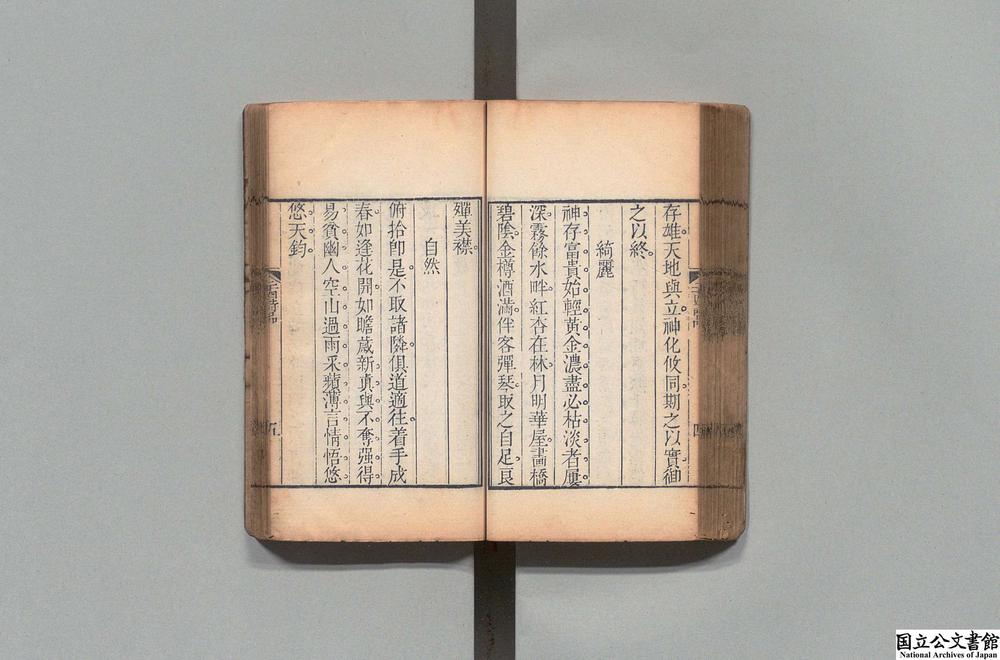 存雄天地與立神化攸同期之以實御
之以終
綺麗
神存富貴始輕黃金濃盡必枯淡者屢
深霧餘水畔紅杏在林月明華屋畵橋
碧陰金樽酒滿伴客彈琴取之自足良
殫美襟
自然
俯拾卽是不取諸隣俱道適往着手成
春如逢花開如瞻歲新眞與不奪强得
易貧幽人空山過雨采蘋薄言情悟悠
悠天鈞
二十四詩品
五
四
国立公文書館
National Archives of Japan